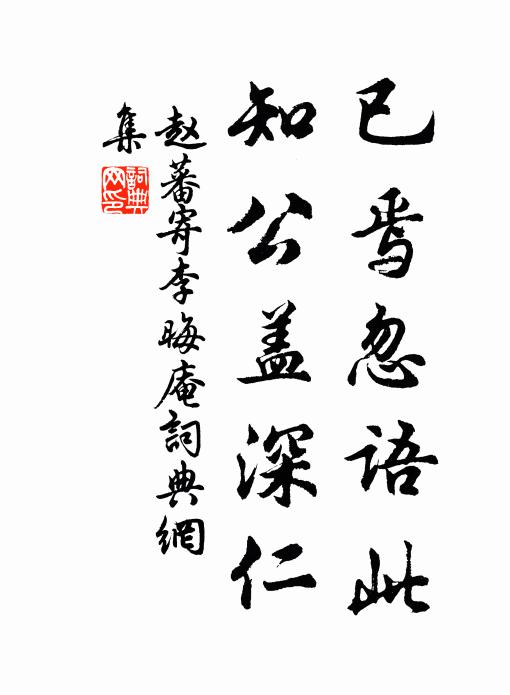 已焉忽语此
知公盖深仁
赵蕃寄李晦庵詞典網
集
詞典网印